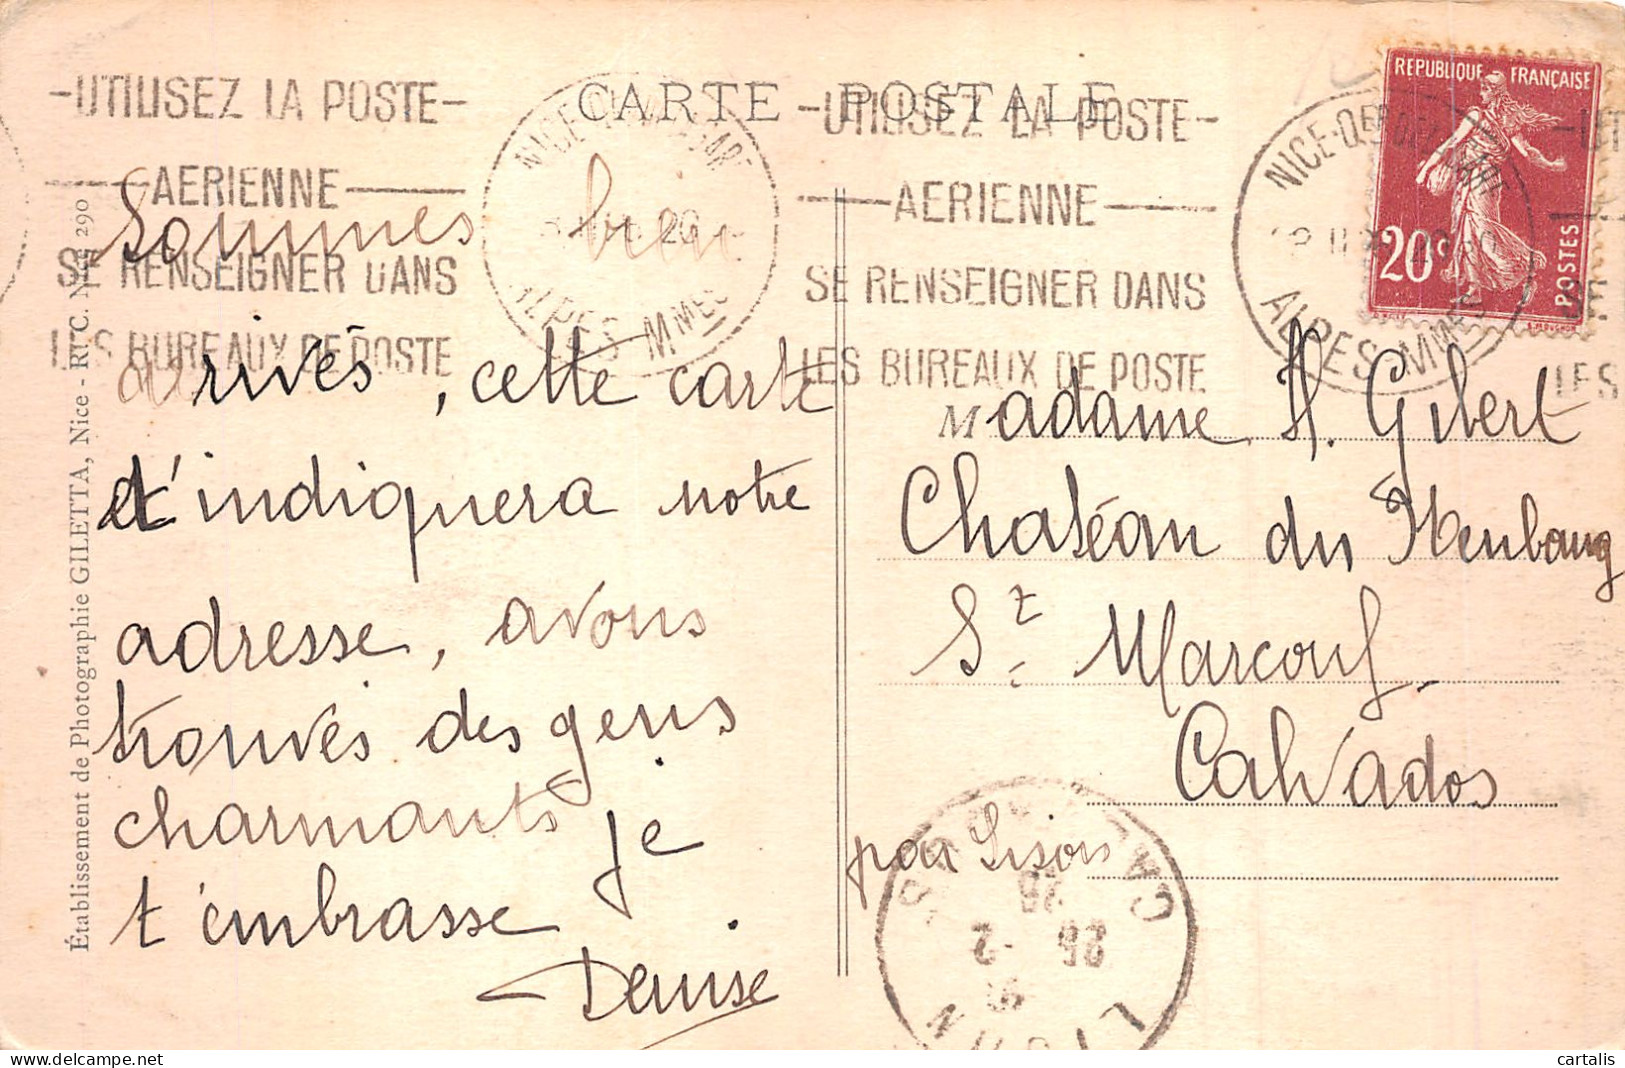 CARTE POSTALE
-UTILISEZ LA POSTE-
AERIENNE
SE RENSEIGNER DANS
LES BUREAUX DE POSTE
-UTILISEZ LA POSTE-
AERIENNE
SE RENSEIGNER DANS
LES BUREAUX DE POSTE
ALPES MMES
NICE
ALPES MMES
REPUBLIQUE FRANÇAISE
20c
POSTES
Sommes bien
arrivés, cette carte
t'indiquera notre
adresse, avons
trouvés des gens
charmants je
t'embrasse
Denise
Madame H. Gibert
Chatéau du
St. Marcouf.
Calvados
par
25 - 2
Établissement de Photographie GILETTA, Nice - R. C. Nice 290
cartalis